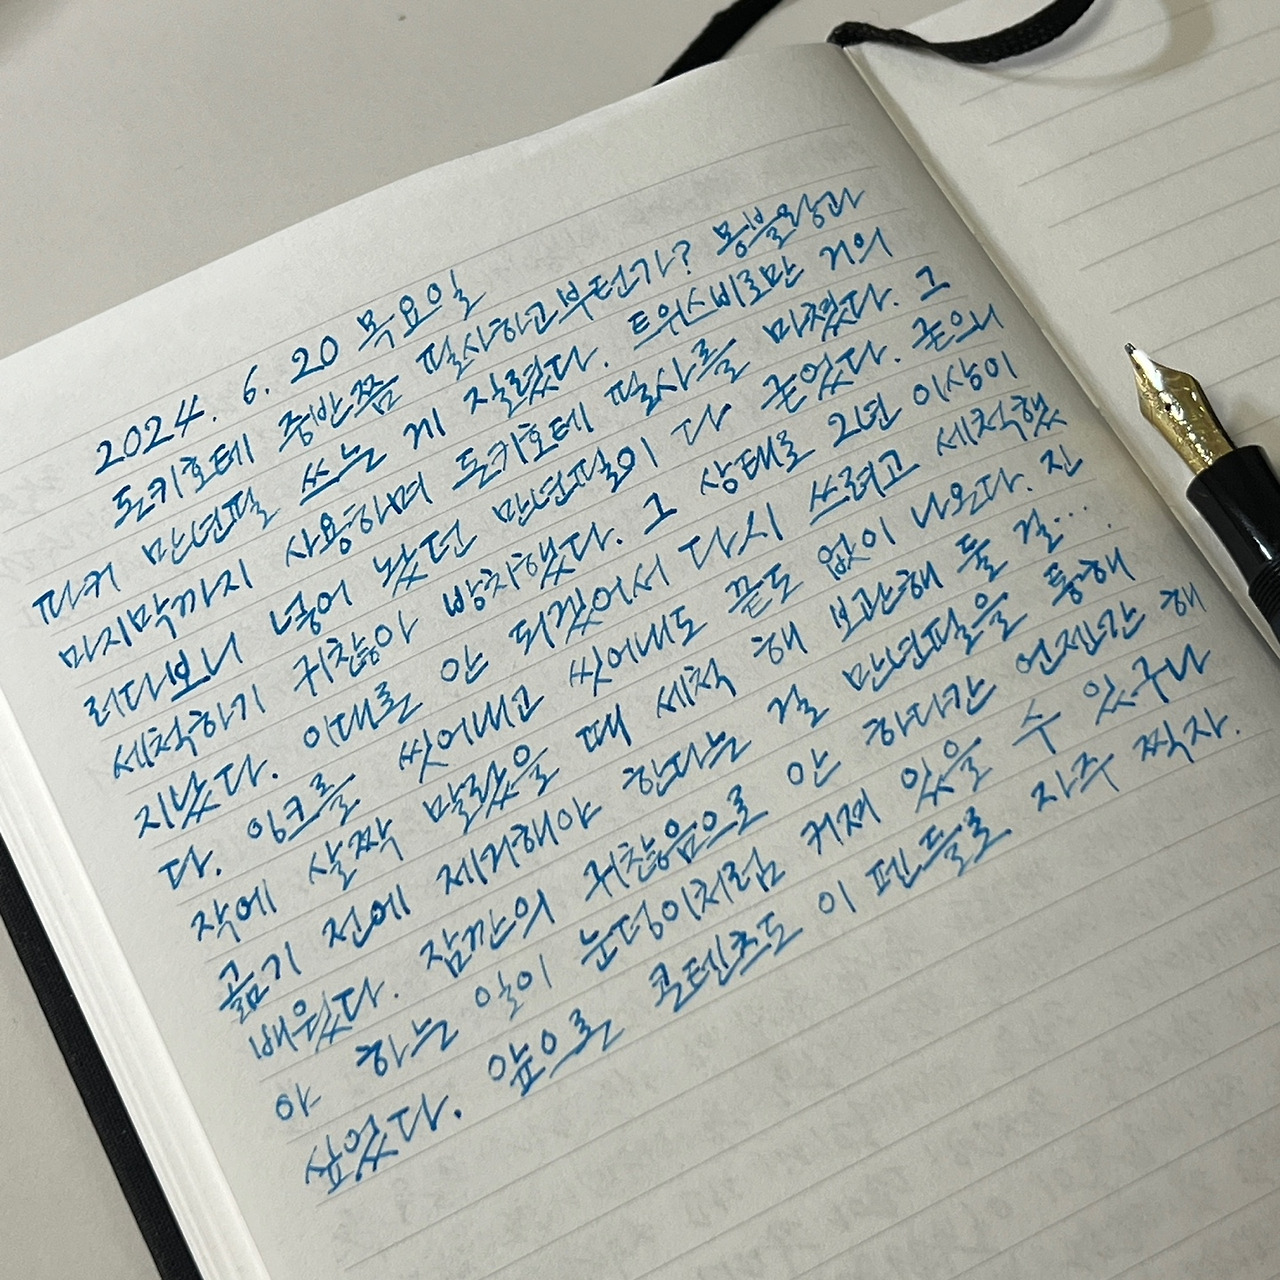 2024. 6. 20 목요일
돈키호테 중반쯤 필사하고부턴가? 몽블랑과
파커 만년필 쓰는 게 질렸다. 트위스비로만 거의
마지막까지 사용하며 돈키호테 필사를 마쳤다. 그
러다보니 넣어 놨던 만년필이 다 굳었다. 굳으니
세척하기 귀찮아 방치했다. 그 상태로 2년 이상이
지났다. 이대로는 안 되겠어서 다시 쓰려고 세척했
다. 잉크를 씻어내고 씻어내도 끝도 없이 나온다. 진
작에 살짝 말랐을 때 세척 해 보관해 둘 걸….
곪기 전에 제거해야 한다는 걸 만년필을 통해
배웠다. 잠깐의 귀찮음으로 안 하다간 언젠간 해
야 하는 일이 눈덩이처럼 커져 있을 수 있구나
싶었다. 앞으로 콘텐츠도 이 펜들로 자주 찍자.